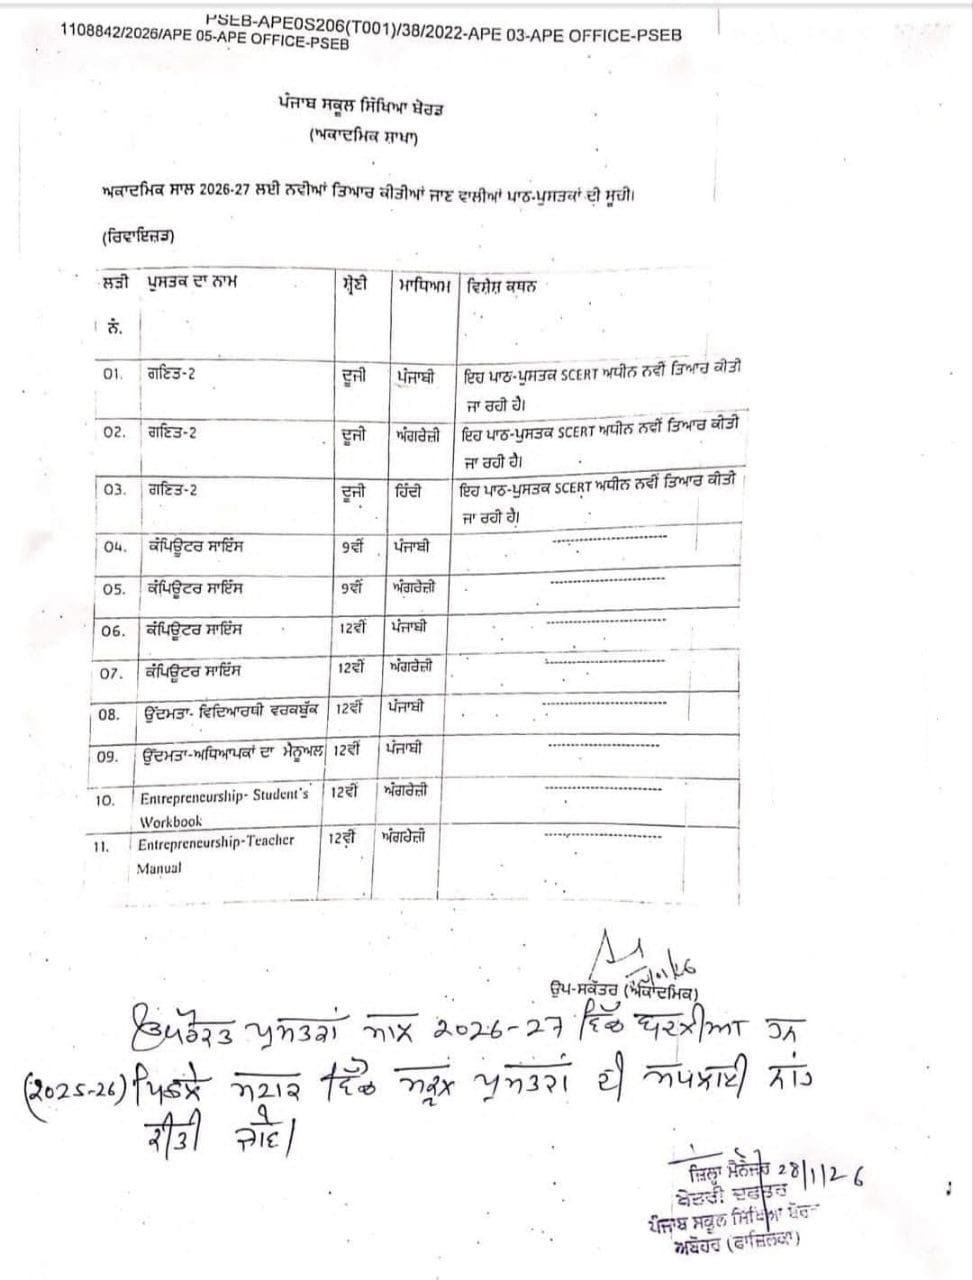 PSEB-APE0S206(T001)/38/2022-APE 03-APE OFFICE-PSEB
1108842/2026/APE 05-APE OFFICE-PSEB
ਪੰਜਾਬ ਸਕੂਲ ਸਿੱਖਿਆ ਬੋਰਡ
(ਅਕਾਦਮਿਕ ਸ਼ਾਖਾ)
ਅਕਾਦਮਿਕ ਸਾਲ 2026-27 ਲਈ ਨਵੀਆਂ ਤਿਆਰ ਕੀਤੀਆਂ ਜਾਣ ਵਾਲੀਆਂ ਪਾਠ-ਪੁਸਤਕਾਂ ਦੀ ਸੂਚੀ।
(ਰਿਵਾਇਜ਼ਡ)
ਲੜੀ ਪੁਸਤਕ ਦਾ ਨਾਮ ਸ਼੍ਰੇਣੀ ਮਾਧਿਅਮ ਵਿਸ਼ੇਸ਼ ਕਥਨ
ਨੰ.
01. ਗਣਿਤ-2 ਦੂਜੀ ਪੰਜਾਬੀ ਇਹ ਪਾਠ-ਪੁਸਤਕ SCERT ਅਧੀਨ ਨਵੀਂ ਤਿਆਰ ਕੀਤੀ
ਜਾ ਰਹੀ ਹੈ।
02. ਗਣਿਤ-2 ਦੂਜੀ ਅੰਗਰੇਜ਼ੀ ਇਹ ਪਾਠ-ਪੁਸਤਕ SCERT ਅਧੀਨ ਨਵੀਂ ਤਿਆਰ ਕੀਤੀ
ਜਾ ਰਹੀ ਹੈ।
03. ਗਣਿਤ-2 ਦੂਜੀ ਹਿੰਦੀ ਇਹ ਪਾਠ-ਪੁਸਤਕ SCERT ਅਧੀਨ ਨਵੀਂ ਤਿਆਰ ਕੀਤੀ
ਜਾ ਰਹੀ ਹੈ।
04. ਕੰਪਿਊਟਰ ਸਾਇੰਸ 9ਵੀਂ ਪੰਜਾਬੀ --------------------
05. ਕੰਪਿਊਟਰ ਸਾਇੰਸ 9ਵੀਂ ਅੰਗਰੇਜ਼ੀ --------------------
06. ਕੰਪਿਊਟਰ ਸਾਇੰਸ 12ਵੀਂ ਪੰਜਾਬੀ --------------------
07. ਕੰਪਿਊਟਰ ਸਾਇੰਸ 12ਵੀਂ ਅੰਗਰੇਜ਼ੀ --------------------
08. ਉੱਦਮਤਾ- ਵਿਦਿਆਰਥੀ ਵਰਕਬੁੱਕ 12ਵੀਂ ਪੰਜਾਬੀ --------------------
09. ਉੱਦਮਤਾ-ਅਧਿਆਪਕਾਂ ਦਾ ਮੈਨੂਅਲ 12ਵੀਂ ਪੰਜਾਬੀ --------------------
10. Entrepreneurship- Student's 12ਵੀਂ ਅੰਗਰੇਜ਼ੀ --------------------
Workbook
11. Entrepreneurship-Teacher 12ਵੀਂ ਅੰਗਰੇਜ਼ੀ --------------------
Manual
ਉਪ-ਸਕੱਤਰ (ਅਕਾਦਮਿਕ)
ਉਪਰੋਕਤ ਪੁਸਤਕਾਂ ਸਾਲ 2026-27 ਵਿੱਚ ਬਦਲੀਆਂ ਹਨ
(2025-26) ਪਿਛਲੇ ਸਟਾਕ ਵਿੱਚੋਂ ਸਕੂਲ ਪੁਸਤਕਾਂ ਦੀ ਸਪਲਾਈ ਨਾਂਹ
ਕੀਤੀ ਜਾਵੇ।
ਜ਼ਿਲ੍ਹਾ ਮੈਨੇਜਰ 28/1/26
ਖੇਤਰੀ ਦਫਤਰ
ਪੰਜਾਬ ਸਕੂਲ ਸਿੱਖਿਆ ਬੋਰਡ
ਅਬੋਹਰ (ਫਾਜ਼ਿਲਕਾ)